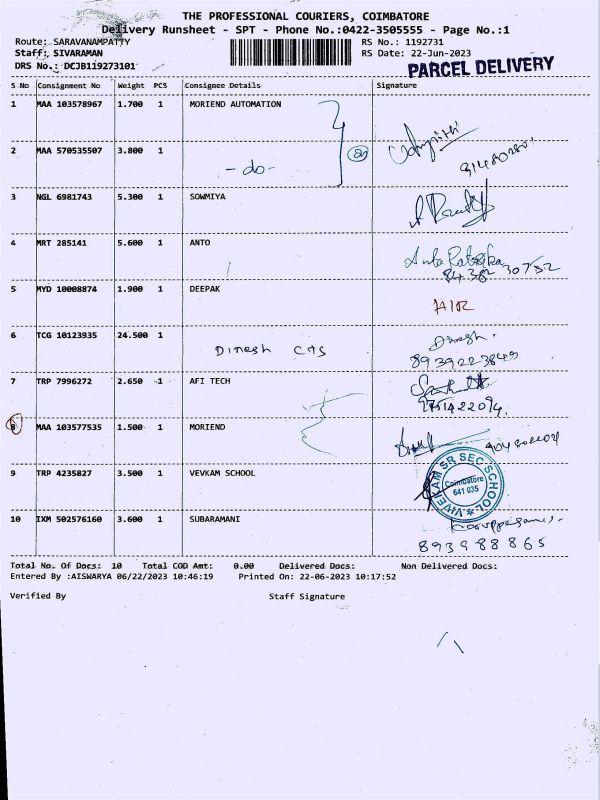 THE PROFESSIONAL COURIERS, COIMBATORE
Delivery Runsheet - SPT - Phone No.:0422-3505555 - Page No.:1
Route: SARAVANAMPATTY RS No.: 1192731
Staff: SIVARAMAN RS Date: 22-Jun-2023
DRS No.: DCJB119273101 PARCEL DELIVERY
S No Consignment No Weight PCS Consignee Details Signature
1 MAA 103578967 1.700 1 MORIEND AUTOMATION
2 MAA 570535507 3.800 1 -do-
3 NGL 6981743 5.300 1 SOWMIYA
4 MRT 285141 5.600 1 ANTO
5 MYD 10008874 1.900 1 DEEPAK
6 TCG 10123935 24.500 1 DINESH CHS Dinesh.
8939223849
7 TRP 7996272 2.650 1 AFI TECH
8 MAA 103577535 1.500 1 MORIEND
9 TRP 4235827 3.500 1 VEVKAM SCHOOL
VIVEKAM SR SEC SCHOOL
Coimbatore
641 035
10 IXM 502576160 3.600 1 SUBARAMANI
893988865
Total No. Of Docs: 10 Total COD Amt: 0.00 Delivered Docs: Non Delivered Docs:
Entered By :AISWARYA 06/22/2023 10:46:19 Printed On: 22-06-2023 10:17:52
Verified By Staff Signature